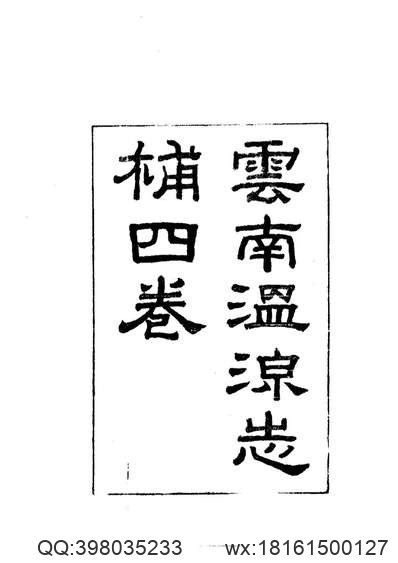 雲南溫涼志
補四卷
QQ:398035233 wx:18161500127